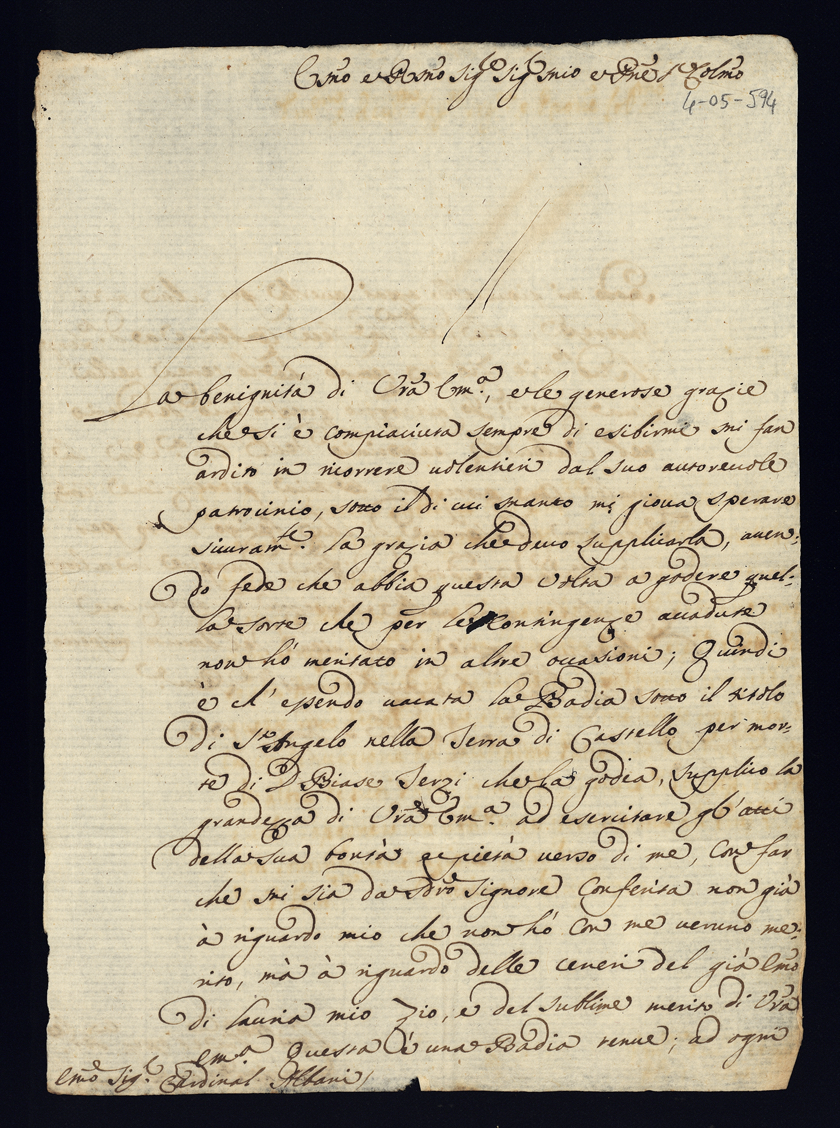 Emo e Rmo Sigre Sigr mio e Pne Colmo
4-05-594
La benignità di Vra Emª, e le generose grazie
che si è compiaciuta sempre di esibirmi mi fan
ardito in ricorrere volentieri dal suo autorevole
patrocinio, sotto il di cui manto mi giova sperare
sicuramte. la grazia che devo supplicarla, aven:
do fede che abbia questa volta a godere quel:
la sorte che per le Contingenze accadute
non hò meritato in altre occasioni; Quindi
è ch' essendo vacata la Badia sotto il titolo
di Sto Angelo nella Terra di Castello per mor:
te di D Biase Terzi che la godea, supplico la
grandezza di Vra Emª. ad esercitare gl'atti
della sua bontà e pietà verso di me, con far
che mi sia da Nro Signore Conferita non già
à riguardo mio che non hò con me veruno me:
rito, mà à riguardo delle ceneri del già Emo
di Lauria mio Zio, e del sublime merito di Vra
Emª. Questa è una Badia tenue; ad ogni
Emo Sigr. Cardinal Albani